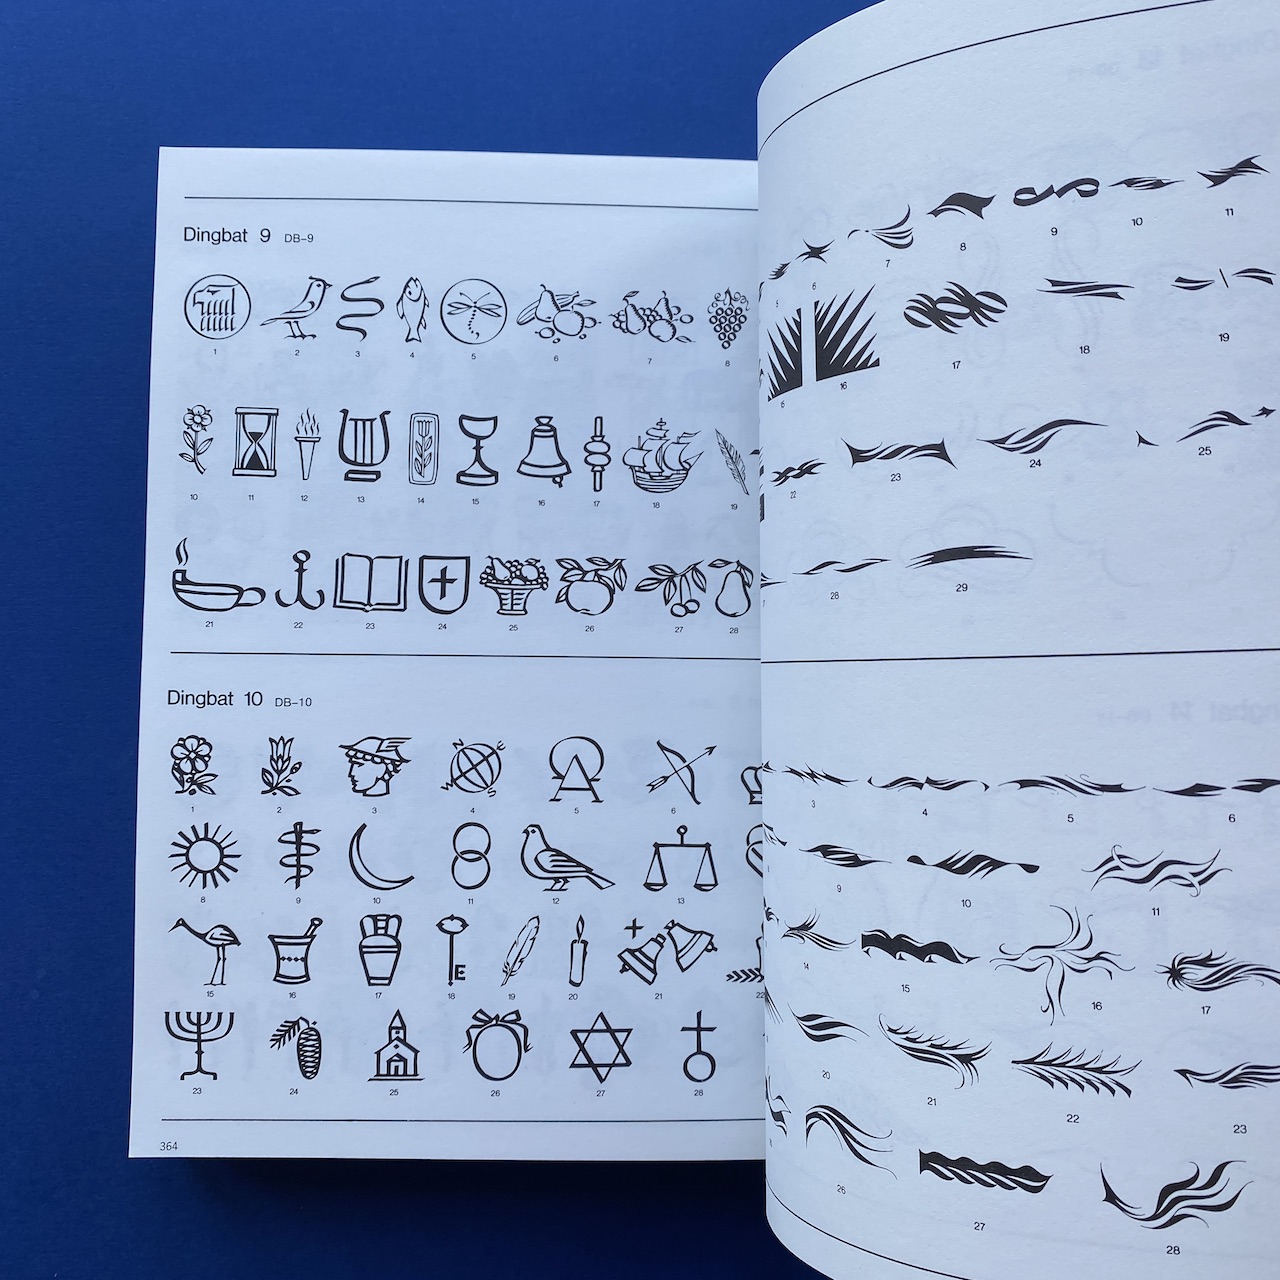 Dingbat 9 DB-9
1 2 3 4 5 6 7 8
10 11 12 13 14 15 16 17 18 19
21 22 23 24 25 26 27 28
Dingbat 10 DB-10
1 2 3 4 5 6
8 9 10 11 12 13
15 16 17 18 19 20 21 22
23 24 25 26 27 28
364
5 6 7 8 9 10 11
15 16 17 18 19
22 23 24 25
28 29
3 4 5 6
9 10 11
14 15 16 17
20 21 22 23
26 27 28